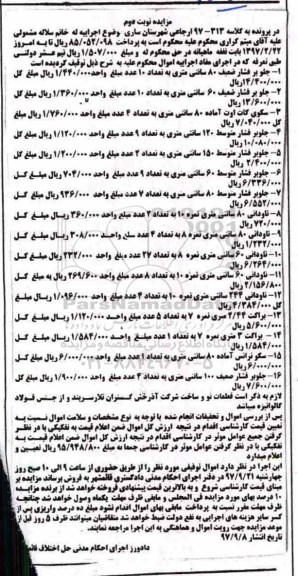 مزایده نوبت دوم
در پرونده به کلاسه ۳۱۳-۹۷ ارجاعی شهرستان ساری وضوع اجراییه له خانم سلاله مشمولی
علیه آقای میثم کراری محکوم علیه محکوم است به پرداخت ۸۵/۰۵۲/۰۹۸ ریال تا به امروز
۱۳۹۷/۲/۲۲ بابت نفقه ماهیانه در حق محکوم له و مبلغ ۱/۵۰۷/۰۰۰ ریال نیم عشر دولتی
طبق تعرفه که در اجرای مفاد اجراییه اموال محکوم علیه به شرح ذیل توقیف گردیده است
۱- جلو بر فشار ضعیف ۸۰ سانتی متری به تعداد ۱۰ عدد مبلغ واحد ۱/۴۴۰/۰۰۰ ریال مبلغ کل
۱۴/۴۰۰/۰۰۰ ریال
۲- جلوبر فشار ضعیف ۶۰ سانتی متری به تعداد ۱۰ عدد مبلغ واحد ۱/۳۶۰/۰۰۰ ریال مبلغ کل
۱۳/۶۰۰/۰۰۰ ریال
۳- سکوی کات اوت آماده ۸۰ سانتی متری به تعداد ۴ عدد مبلغ واحد ۱/۷۶۰/۰۰۰ ریال مبلغ
کل ۷/۰۴۰/۰۰۰ ریال
۴- جلوبر فشار متوسط ۱۲۰ سانتی متری به تعداد ۹ عدد مبلغ واحد ۱/۱۲۰/۰۰۰ ریال مبلغ کل
۱۰/۰۸۰/۰۰۰ ریال
۵- جلوبر فشار متوسط ۱۵۰ سانتی متری به تعداد ۲ عدد مبلغ واحد ۱/۲۰۰/۰۰۰ ریال مبلغ کل
۲/۴۰۰/۰۰۰ ریال
۶- جلوبر فشار متوسط ۶۰ سانتی متری به تعداد ۹ عدد مبلغ واحد ۷۰۴/۰۰۰ ریال مبلغ کل
۶/۳۳۶/۰۰۰ ریال
۷- جلوبر فشار متوسط ۸۰ سانتی متری به تعداد ۷ عدد مبلغ واحد ۹۳۶/۰۰۰ ریال مبلغ کل
۶/۵۵۲/۰۰۰ ریال
۸- ناودانی ۸۰ سانتی متری نمره ۱۰ به تعداد ۲ عدد مبلغ واحد ۳۶۰/۰۰۰ ریال مبلغ کل
۷۲۰/۰۰۰ ریال
۹- ناودانی ۸۰ سانتی متری نمره ۸ به تعداد ۴ عدد مبلغ واحد ۳۰۸/۰۰۰ ریال مبلغ کل
۱/۲۳۲/۰۰۰ ریال
۱۰- ناودانی ۶۰ سانتی متری نمره ۸ به تعداد ۲۷ عدد مبلغ واحد ۲۳۲/۰۰۰ ریال مبلغ کل
۶/۲۶۴/۰۰۰ ریال
۱۱- ناودانی ۶۰ سانتی متری نمره ۱۰ به تعداد ۸ عدد مبلغ واحد ۲۶۹/۶۰۰ ریال به مبلغ کل
۲/۱۵۶/۸۰۰ ریال
۱۲- ناودانی ۲۴۴ سانتی متری نمره ۱۰ به تعداد ۴ عدد مبلغ واحد ۱/۰۹۶/۰۰۰ ریال مبلغ
کل ۴/۳۸۴/۰۰۰ ریال
۱۳- براکت ۲/۴۴ متری نمره ۷ به تعداد ۵ عدد مبلغ واحد ۱/۱۲۰/۰۰۰ ریال مبلغ کل
۵/۶۰۰/۰۰۰ ریال
۱۴- براکت ۳ متری نمره ۷ به تعداد ۱ عدد مبلغ واحد ۱/۵۸۴/۰۰۰ ریال مبلغ کل
۱/۵۸۴/۰۰۰ ریال
۱۵- سکو ترانس آماده ۸۰ سانتی متری به تعداد ۱ عدد مبلغ واحد ۶/۰۰۰/۰۰۰ ریال مبلغ کل
۶/۰۰۰/۰۰۰ ریال
۱۶- جلوبر فشار ضعیف ۱۰۰ سانتی متری به تعداد ۴ عدد مبلغ واحد ۱/۹۰۰/۰۰۰ ریال مبلغ کل
۷/۶۰۰/۰۰۰ ریال
لازم به ذکر است قطعات نو و ساخت شرکت آذرخش گستران تلارسربند و از جنس فولاد
گالوانیزه میباشد
پس از بررسی اموال و تحقیقات انجام شده با توجه به نوع مشخصات و سلامت اموال نسبت به
تعیین قیمت کارشناسی اقدام در نتیجه ارزش کل اموال ضمن اعلام قیمت به تفکیکی با در نظر
گرفتن جمیع عوامل موثر در کارشناسی اقدام در نتیجه ارزش کل اموال ضمن اعلام قیمت به
تفکیکی با در نظر گرفتن عوامل موثر در کارشناسی جمعا به مبلغ ۹۵/۹۴۸/۸۰۰ ریال تعیین و
اعلام میدارد
این اجرا در نظر دارد اموال توقیفی مورد نظر را از طریق حضوری از ساعت ۹ الی ۱۰ صبح روز
چهارشنبه ۹۷/۹/۲۱ در دفتر اجرای احکام مدنی دادگستری قائمشهر به فروش برساند مزایده بر
مبنای قیمت کارشناسی شروع و به بالاترین قیمت پیشنهادی فروخته خواهد شد از برنده مزایده
۱۰ درصد بهای مورد مزایده فی المجلس و مابقی ظرف مهلت یکماه وصول خواهد شد چنانچه
ظرف مهلت مقرر نسبت به پرداخت مابقی بهای اموال اقدام نشود مبلغ ده درصد واریزی پس از
کسر سایر هزینه های اجرایی به نفع دولت ضبط خواهد شد متقاضیان میتوانند ظرف ۵ روز قبل از
موعد مزایده جهت رویت اموال و هماهنگی به این اجرا مراجعه نمایند.
تاریخ انتشار ۹۷/۹/۸
دادورز اجرای احکام مدنی حل اختلاف